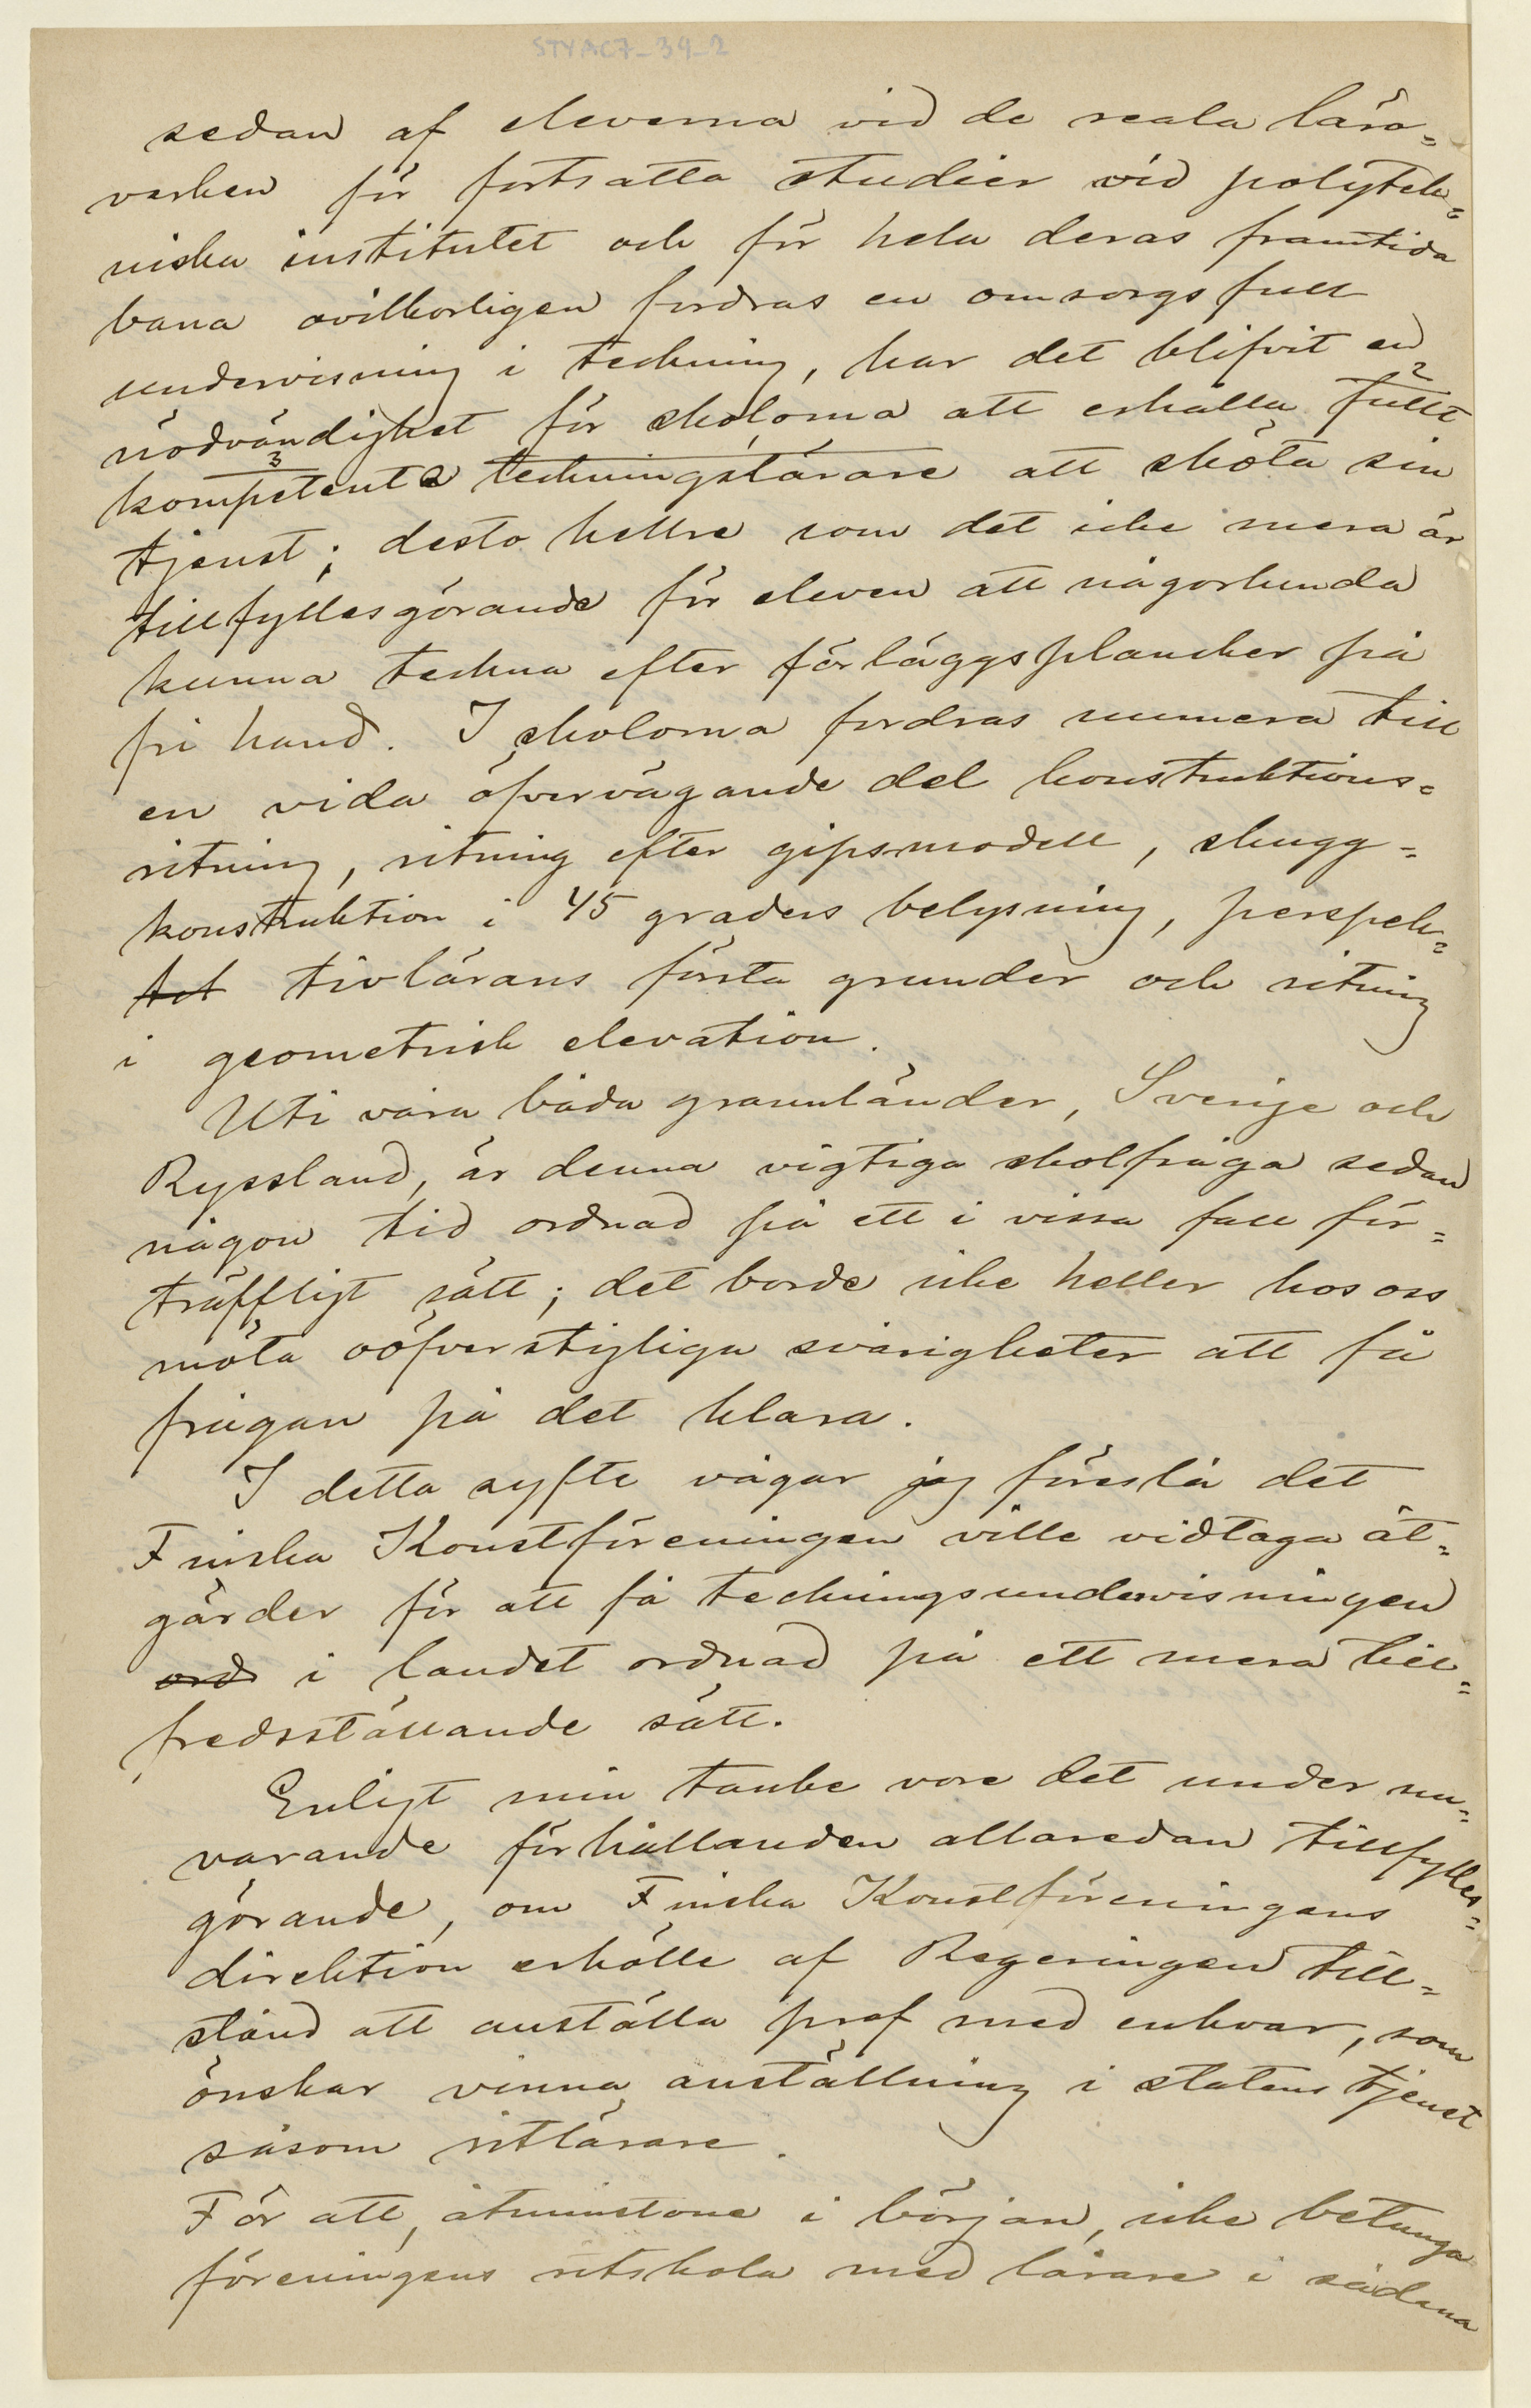 STYAC7_39_2
sedan af eleverna vid de reala läro=
verken för fortsatta studier vid polytek=
niska institutet och för hela deras framtida
bana ovilkorligen fordras en omsorgsfull
undervisning i teckning, har det blifvit en
nödvändighet för skolorna att erhålla fullt 2
kompetenta 3 teckningslärare att sköta sin
tjenst; desto hellre som det icke mera är
tillfyllesgörande för eleven att någorlunda
kunna teckna efter förläggsplancher på
fri hand. I skolorna fordras numera till
en vida öfvervägande del konstruktions=
ritning, ritning efter gipsmodell, skugg=
konstruktion i 45 graders belysning, perspek=
tet tivlärans första grunder och ritning
i geometrisk elevation.
Uti våra båda grannländer, Sverige och
Ryssland, är denna vigtiga skolfråga sedan
någon tid ordnad på ett i vissa fall för=
träffligt sätt; det borde icke heller hos oss
möta oöfverstigliga svårigheter att få
frågan på det klara.
I detta syfte vågar jag föreslå det
Finska Konstföreningen ville vidtaga åt=
gärder för att få teckningsundervisningen
ord i landet ordnad på ett mera till=
fredsställande sätt.
Enligt min tanke vore det under nu=
varande förhållanden allaredan tillfylles=
görande, om Finska Konstföreningens
direktion erhölle af Regeringen till=
stånd att anställa prof med enhvar, som
önskar vinna anställning i statens tjenst
såsom ritlärare.
För att, åtminstone i början, icke betunga
föreningens ritskola med lärare i sådana